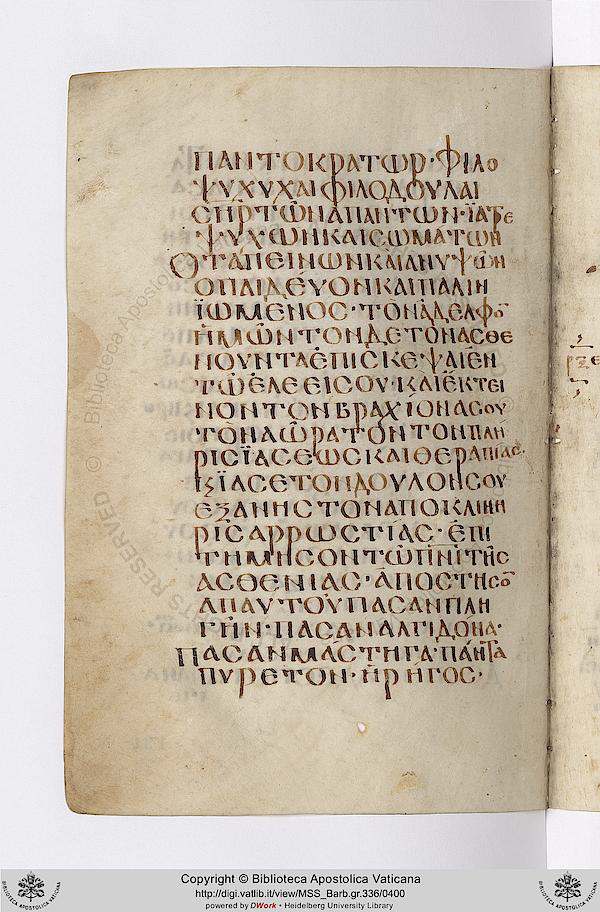 ΠΑΝΤΟΚΡΑΤΩΡ · ΦΙΛΟ
ΨΥΧΥΧΑΙ ΦΙΛΟΔΟΥΛΑΙ
ϹΗΡ ΤΩΝ ΑΠΑΝΤΩΝ · ΪΑΤΡΕ
ΨΥΧΩΝ ΚΑΙ ϹΩΜΑΤΩΝ
Ο ΤΑΠΕΙΝΩΝ ΚΑΙ ΑΝΥΨΩΝ
Ο ΠΑΙΔΕΥΟΝ ΚΑΙ ΠΑΛΙΝ
ΪΩΜΕΝΟϹ · ΤΟΝ ΑΔΕΛΦΟ
ΗΜΩΝ ΤΟΝΔΕ ΤΟΝ ΑϹΘΕ
ΝΟΥΝΤΑ ΕΠΙϹΚΕΨΑΙ ΕΝ
ΤΩ ΕΛΕΕΙ ϹΟΥ · ΚΑΙ ΕΚΤΕΙ
ΝΟΝ ΤΟΝ ΒΡΑΧΙΟΝΑ ϹΟΥ
ΤΟΝ ΑΩΡΑΤΟΝ ΤΟΝ ΠΛΗ
ΡΙϹ ΪΑϹΕΩϹ ΚΑΙ ΘΕΡΑΠΙΑϹ ·
Κ ΪΑϹΕ ΤΟΝ ΔΟΥΛΟΝ ϹΟΥ
ΕΞΑΝΗϹΤΟΝ ΑΠΟ ΚΛΙΝΗ
ΡΙϹ ΑΡΡΩϹΤΙΑϹ · ΕΠΙ
ΤΗΜΗϹΟΝ ΤΩ ΠΝΙ ΤΗϹ
ΑϹΘΕΝΙΑϹ · ΑΠΟϹΤΗϹΟ
ΑΠ ΑΥΤΟΥ ΠΑϹΑΝ ΠΛΗ
ΓΗΝ · ΠΑϹΑΝ ΑΛΓΙΔΟΝΑ ·
ΠΑϹΑΝ ΜΑϹΤΗΓΑ · ΠΑΝΤΑ
ΠΥΡΕΤΟΝ · Η ΡΗΓΟϹ ·
© Biblioteca Apostolica
RIGHTS RESERVED
Copyright © Biblioteca Apostolica Vaticana
http://digi.vatlib.it/view/MSS_Barb.gr.336/0400
powered by DWork • Heidelberg University Library